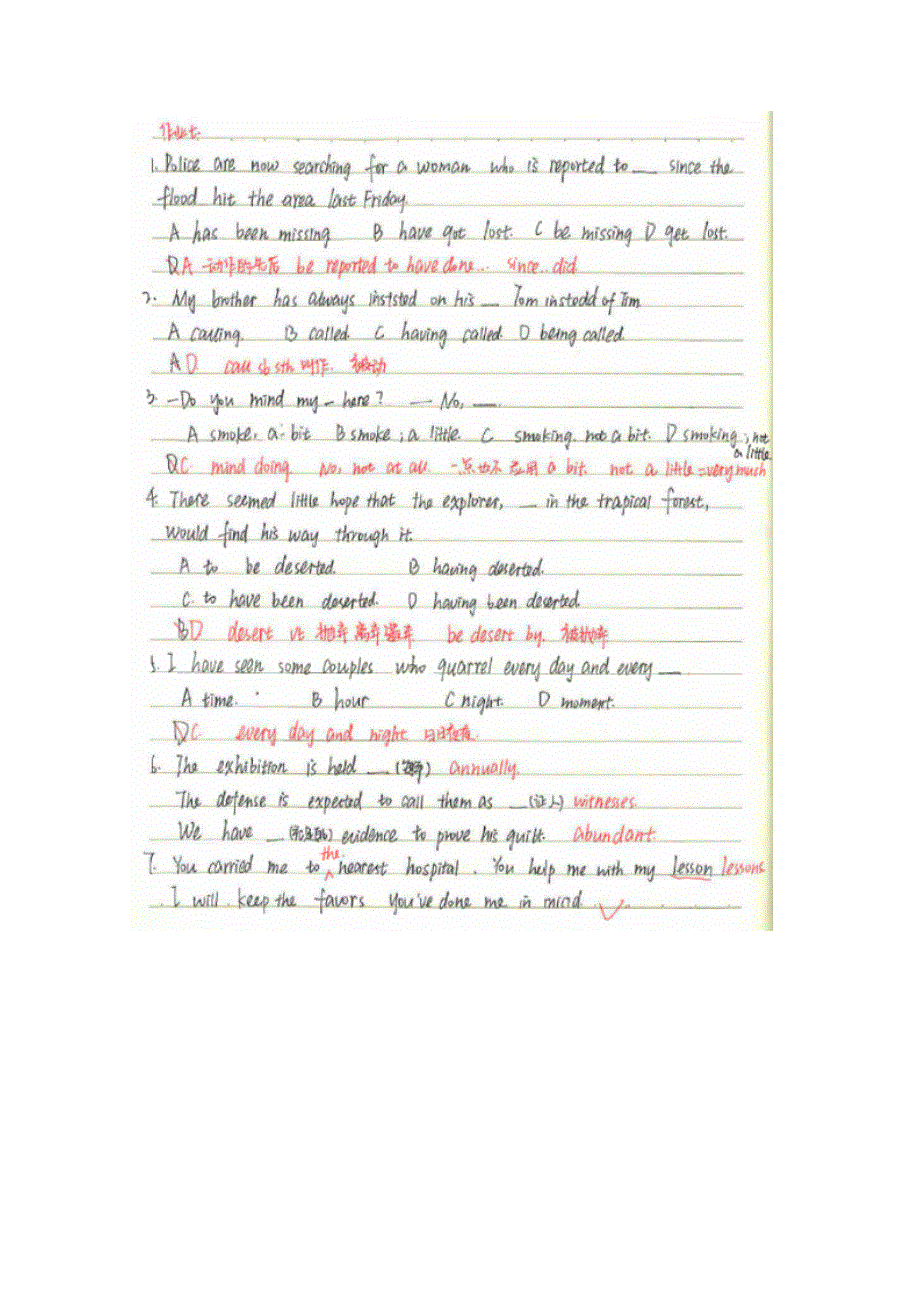 作业七
1. Police are now searching for a woman who is reported to __ since the
flood hit the area last Friday.
A has been missing B have got lost. C be missing D get lost.
D A 动作的先后 be reported to have done... since.. did
2. My brother has always inststed on his __ Tom instedd of Tim
A cauing. B called. C having called. D being called.
A D call sb sth 叫作. 被动
3. -Do you mind my - here? — No, __.
A smoke, a bit B smoke; a little. C smoking. not a bit. D smoking; not a little.
D C mind doing. No, not at all 一点也不 a bit. not a little = very much
4. There seemed little hope that the explorer, __ in the trapical forest,
would find his way through it.
A to be deserted. B having deserted.
C. to have been deserted. D having been deserted.
B D desert vt 抛弃 离弃 遗弃 be desert by. 被抛弃
5. I have seen some couples who quarrel every day and every __
A time. B hour C night. D moment.
D C. every day and night 日日夜夜.
6. The exhibition is held __ () annually.
The defense is expected to call them as __ (证人) witnesses
We have __ () evidence to prove his guilt. abundant
7. You carried me to the nearest hospital. You help me with my lesson lessons
I will keep the favors you've done me in mind